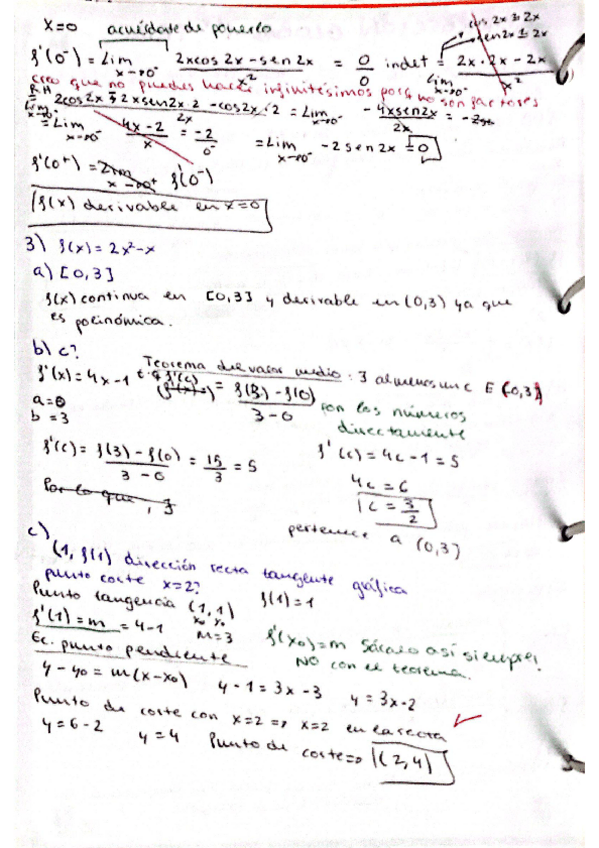 x=0 acuérdate de ponerlo cos 2x ≃ 2x
sen2x ≃ 2x
f'(0⁻) = Lim x→0⁻ 2xcos 2x - sen 2x / x² = 0/0 indet = Lim x→0⁻ 2x · 2x - 2x / x²
creo que no puedes hacer infinitésimos porq no son factores
= Lim x→0⁻ 4x-2 / x = -2 / 0⁻ = Lim x→0⁻ -2 sen 2x = 0
f'(0⁺) = Lim x→0⁺ f'(0⁻)
f(x) derivable en x=0
3) f(x) = 2x²-x
a) [0,3]
f(x) continua en [0,3] y derivable en (0,3) ya que
es polinómica.
b) c?
Teorema del valor medio: ∃ al menos un c ∈ (0,3)
f'(x) = 4x-1 t.q f'(c) = f(3) - f(0) / 3-0
a=0
b=3
con los números
directamente
f'(c) = f(3) - f(0) / 3-0 = 15/3 = 5 f'(c) = 4c-1 = 5
4c = 6
Por lo que, ∃
c = 3/2
pertenece a (0,3)
c)
(1, f(1)) dirección recta tangente gráfica
punto corte x=2?
Punto tangencia (1,1) f(1)=1
x₀ y₀
f'(1) = m = 4-1 m=3
f'(x₀)=m Sácalo así siempre!
NO con el teorema.
Ec. punto pendiente
y - y₀ = m(x-x₀) y-1 = 3x-3 y = 3x-2
Punto de corte con x=2 => x=2 en la recta
y=6-2 y=4 Punto de corte => (2,4)